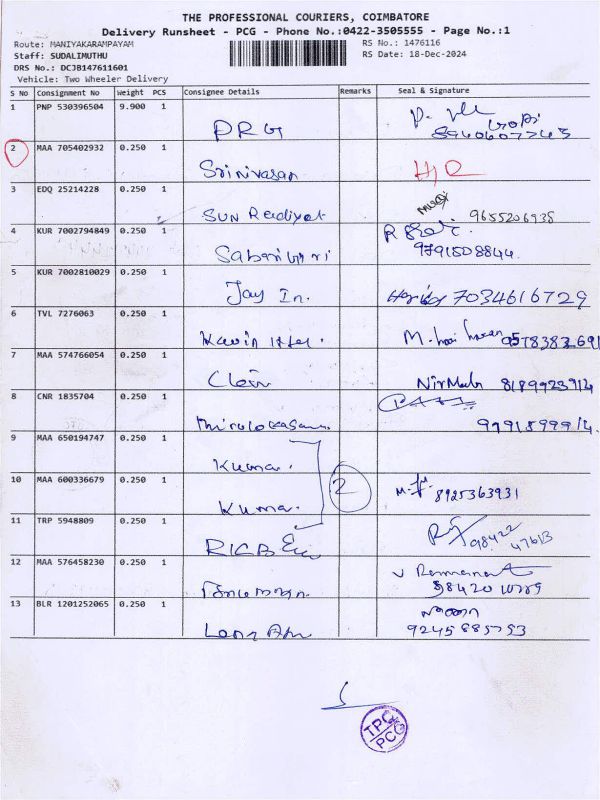 THE PROFESSIONAL COURIERS, COIMBATORE
Delivery Runsheet - PCG - Phone No.:0422-3505555 - Page No.:1
Route: MANIYAKARAMPAYAM RS No.: 1476116
Staff: SUDALIMUTHU RS Date: 18-Dec-2024
DRS No.: DCJB147611601
Vehicle: Two Wheeler Delivery
S No Consignment No Weight PCS Consignee Details Remarks Seal & Signature
1 PNP 530396504 9.900 1
PRG 8940607745
2 MAA 705402932 0.250 1
Srinivasan
3 EDQ 25214228 0.250 1
SUN 9655206938
4 KUR 7002794849 0.250 1
9791508844
5 KUR 7002810029 0.250 1
Jay In. 7034616729
6 TVL 7276063 0.250 1
Kavin
7 MAA 574766054 0.250 1
8189923914
8 CNR 1835704 0.250 1
9 MAA 650194747 0.250 1
Kumar.
10 MAA 600336679 0.250 1
Kumar. 2 8925363931
11 TRP 5948809 0.250 1
98422
47613
12 MAA 576458230 0.250 1
13 BLR 1201252065 0.250 1
9245885753
TPC
PCG